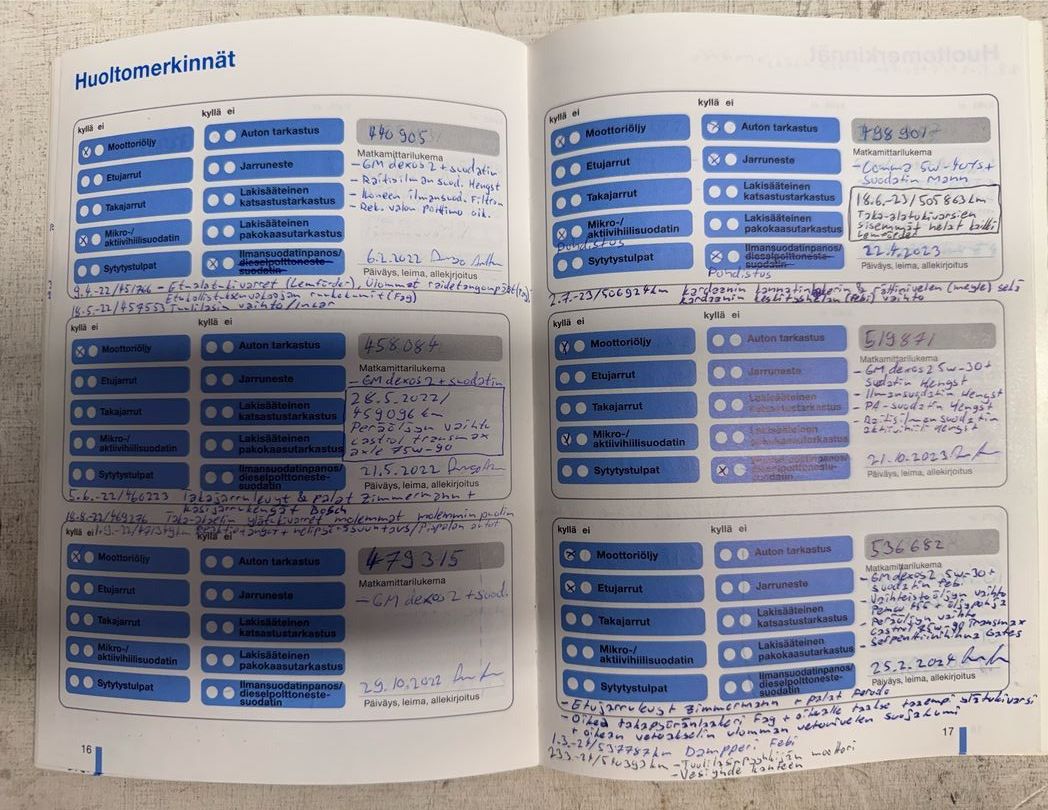 Huoltomerkinnät
kyllä ei kyllä ei
Moottoriöljy
Etujarrut
Takajarrut
Mikro-/
aktiivihiilisuodatin
Sytytystulpat
Auton tarkastus
Jarruneste
Lakisääteinen
katsastustarkastus
Lakisääteinen
pakokaasutarkastus
Ilmansuodatinpanos/
dieselpolttoneste-
suodatin
440905
Matkamittarilukema
- GM dexos2 + suodatin
- Raitisilman suod. Hengst
- Koneen ilmansuod. Filtron
- Rek. valon polttimo oik.
6.2.2022
Päiväys, leima, allekirjoitus
9.4-22/451766 - Etualatukivarret (Lemförder), Ulommat raidetangonpäät
18.5-22/457553 Tuulilasin vaihto/
kyllä ei kyllä ei
Moottoriöljy
Etujarrut
Takajarrut
Mikro-/
aktiivihiilisuodatin
Sytytystulpat
Auton tarkastus
Jarruneste
Lakisääteinen
katsastustarkastus
Lakisääteinen
pakokaasutarkastus
Ilmansuodatinpanos/
dieselpolttoneste-
suodatin
458084
Matkamittarilukema
- GM dexos2 + suodatin
28.5.2022/
459096 km
Peräöljyn vaihto
castrol transmax
axle 75w-90
21.5.2022
Päiväys, leima, allekirjoitus
5.6.-22/460223 Takajarrulevyt & palat Zimmermann +
käsijarrukengät Bosch
18.8.-22/469276 Taka-akselin ylätukivarret molemmat molemmin puolin
kyllä ei kyllä ei
Moottoriöljy
Etujarrut
Takajarrut
Mikro-/
aktiivihiilisuodatin
Sytytystulpat
Auton tarkastus
Jarruneste
Lakisääteinen
katsastustarkastus
Lakisääteinen
pakokaasutarkastus
Ilmansuodatinpanos/
dieselpolttoneste-
suodatin
479315
Matkamittarilukema
- GM dexos2 + suod.
29.10.2022
Päiväys, leima, allekirjoitus
16
kyllä ei kyllä ei
Moottoriöljy
Etujarrut
Takajarrut
Mikro-/
aktiivihiilisuodatin
Puhdistus
Sytytystulpat
Auton tarkastus
Jarruneste
Lakisääteinen
katsastustarkastus
Lakisääteinen
pakokaasutarkastus
Ilmansuodatinpanos/
dieselpolttoneste-
suodatin
Puhdistus
498901
Matkamittarilukema
- Comma 5w-40 +
suodatin Mann
18.6.-23/505863km
Taka-alatukivarsien
sisemmät helat
Lemförder
22.4.2023
Päiväys, leima, allekirjoitus
2.7.-23/506924km kardaanin kannatinlaakerin & rattinivelen (meyle) sekä
kardaanin keskityshelan (Febi) vaihto
kyllä ei kyllä ei
Moottoriöljy
Etujarrut
Takajarrut
Mikro-/
aktiivihiilisuodatin
Sytytystulpat
Auton tarkastus
Jarruneste
Lakisääteinen
katsastustarkastus
Lakisääteinen
pakokaasutarkastus
Ilmansuodatinpanos/
dieselpolttoneste-
suodatin
519871
Matkamittarilukema
- GM dexos2 5w-30 +
suodatin Hengst
- Ilmansuodatin Hengst
- PA-suodatin Hengst
- Raitisilman suodatin
aktiivihiili Hengst
21.10.2023
Päiväys, leima, allekirjoitus
kyllä ei kyllä ei
Moottoriöljy
Etujarrut
Takajarrut
Mikro-/
aktiivihiilisuodatin
Sytytystulpat
Auton tarkastus
Jarruneste
Lakisääteinen
katsastustarkastus
Lakisääteinen
pakokaasutarkastus
Ilmansuodatinpanos/
dieselpolttoneste-
suodatin
536682
Matkamittarilukema
- GM dexos2 5w-30 +
suodatin Febi
- Vaihteistoöljyn vaihto
- Peräöljyn vaihto
Castrol 75w-90 Transmax
- Serpentiinihihna Gates
25.2.2024
Päiväys, leima, allekirjoitus
- Etujarrulevyt Zimmermann + palat
- Oikea takapyöränlaakeri Fag + oikealle taakse taaempi ylätukivarsi
+ oikean vetoakselin ulomman vetonivelen suojakumi
1.3.-24/537787km Dampperi Febi
- Tuulilasinpyyhkijän moottori
- Vesiyhde kanteen
17